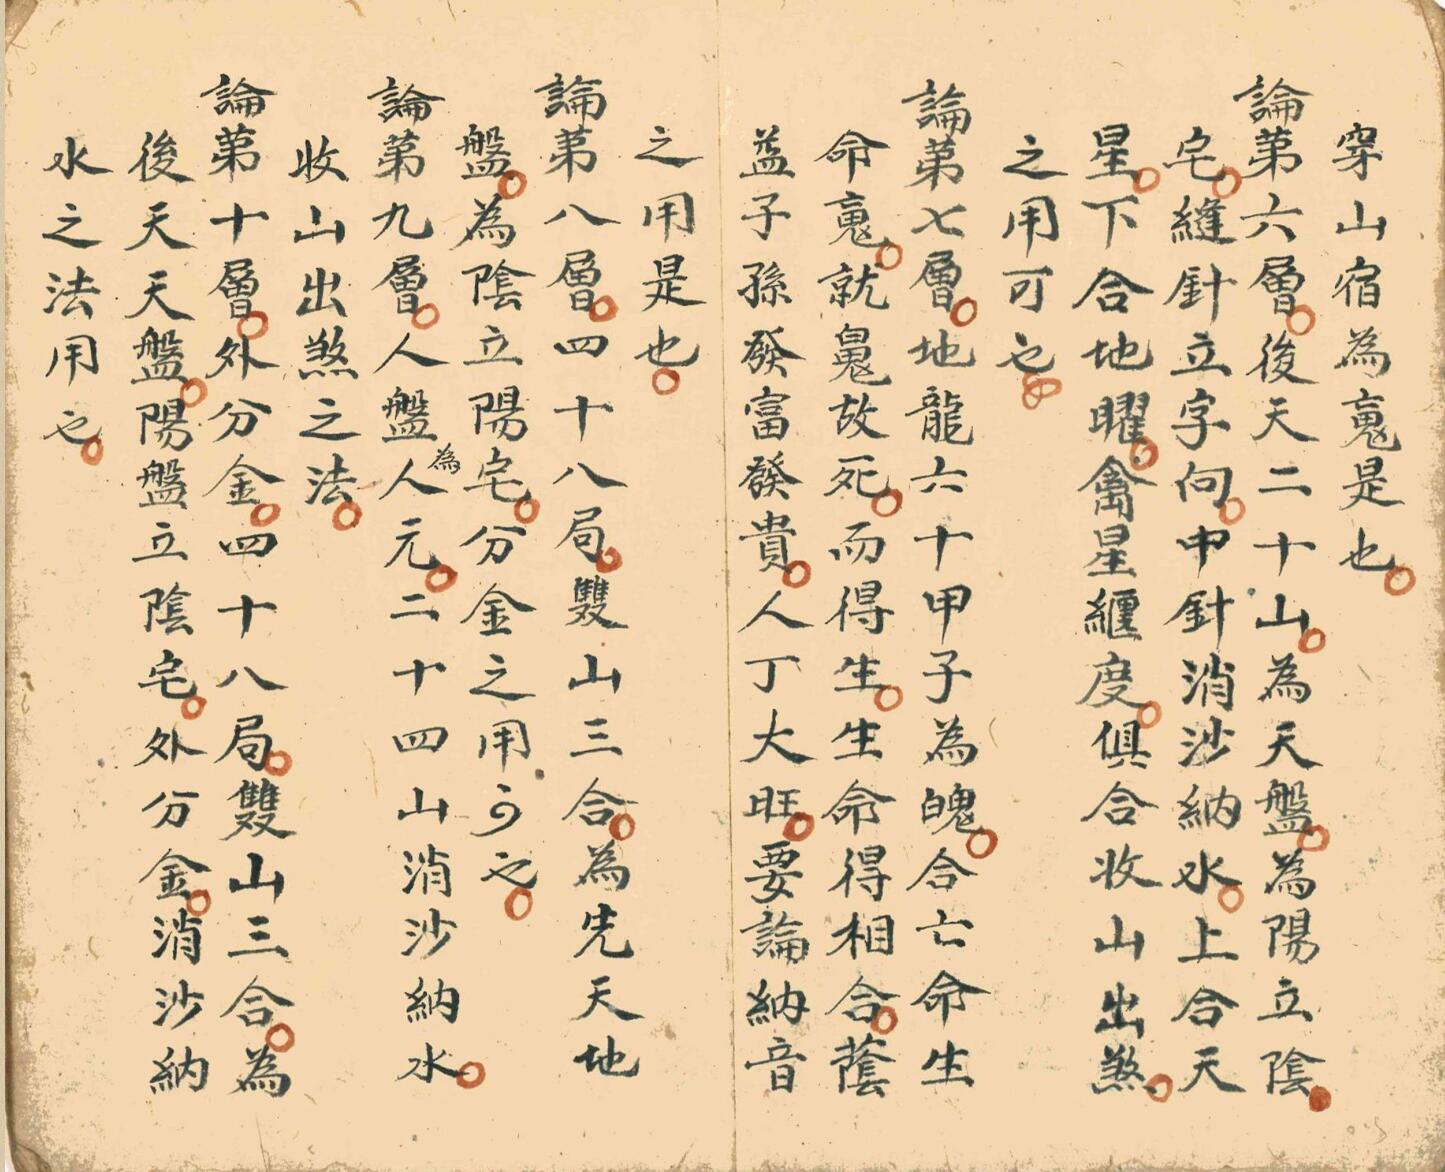 穿山宿為䰟是也
論第六層後天二十山為天盤為陽立陰
宅縫針立字向中針消沙納水上合天
星下合地曜禽星纏度俱合收山出煞
之用可也
論第七層地龍六十甲子為魄合亡命生
命䰟就䰟故死而得生生命得相合蔭
益子孫發富發貴人丁大旺要論納音
之用是也
論第八層四十八局雙山三合為先天地
盤為陰立陽宅分金之用可也
論第九層人盤為人元二十四山消沙納水
收山出煞之法
論第十層外分金四十八局雙山三合為
後天天盤陽盤立陰宅外分金消沙納
水之法用也